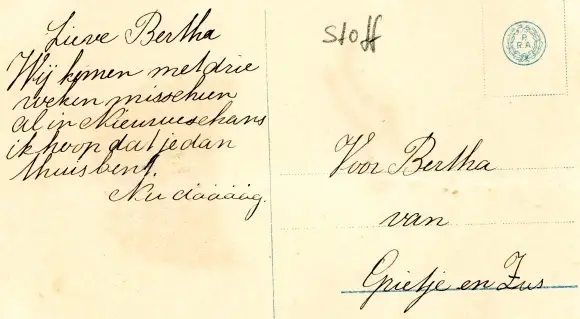 Lieve Bertha
Wij komen met drie
weken misschien
al in Nieuweschans
ik hoop dat je dan
thuis bent.
Nu daaaaag.
Stoff
R
RA
Voor Bertha
van
Grietje en Zus